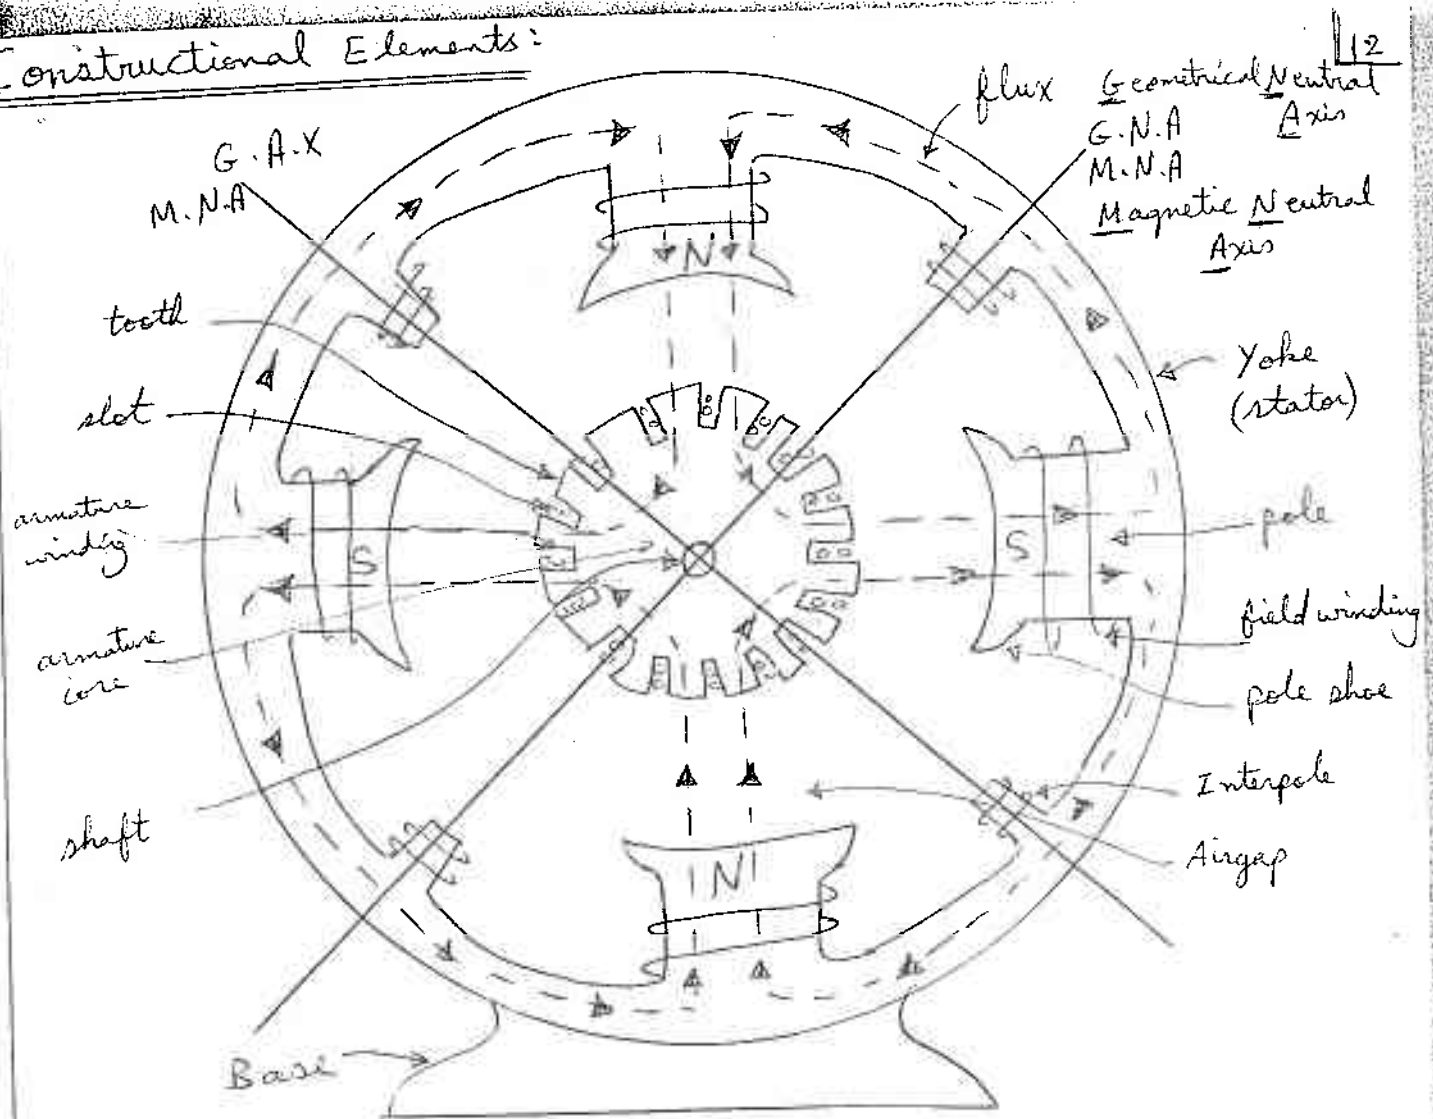 Constructional Elements:
12
flux
Geometrical Neutral
Axis
G.N.A
M.N.A
Magnetic Neutral
Axis
G.A.X
M.N.A
tooth
slot
armature
windig
armature
core
shaft
Base
N
S
S
N
Yoke
(stator)
pole
field winding
pole shoe
Interpole
Airgap